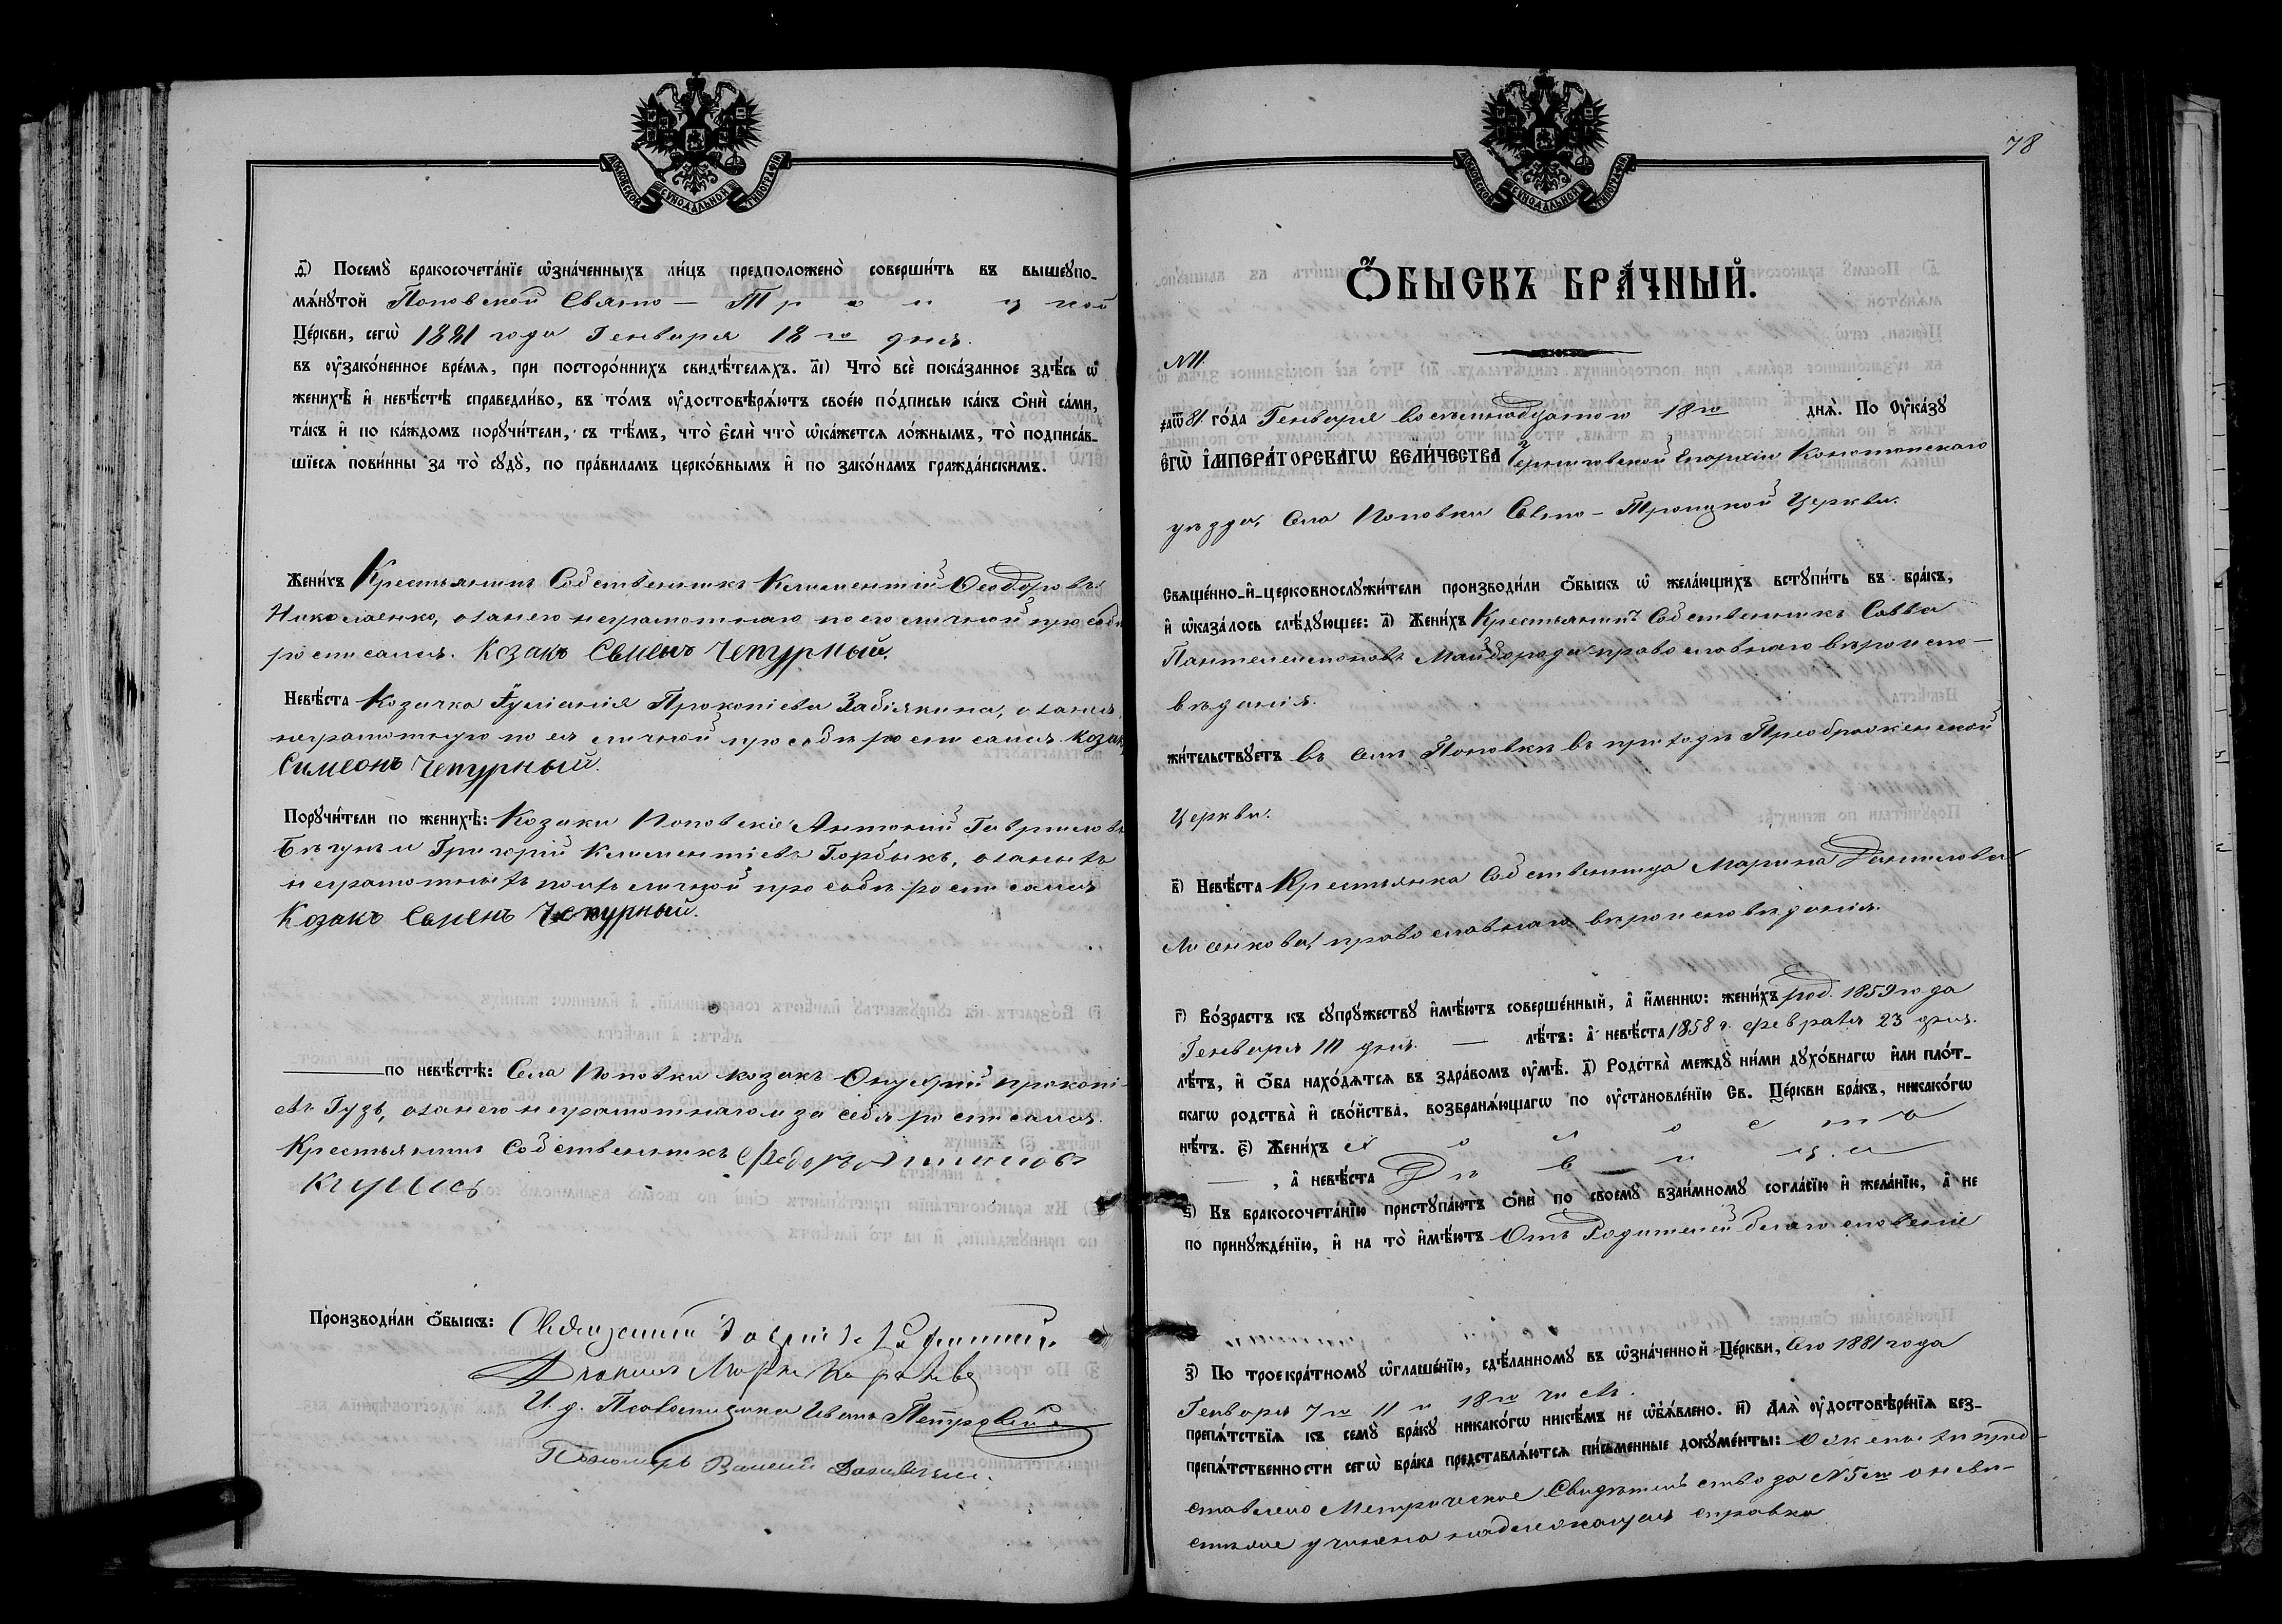 МОСКОВСКОЙ СѴНОДАЛЬНОЙ ТИПОГРАФІИ
і҃) Посемꙋ̀ бракосочета́нїе ѡ҆зна́ченныхъ ли́цъ предположено̀ соверши́ть въ вышеꙋпо-
мѧ́нꙋтой Поповской Свято – Троицкой
Це́ркви, сегѡ̀ 1881 года Генваря 18го дня.
въ ᲂу҆зако́ненное вре́мѧ, при посторо́ннихъ свидѣ́телѧхъ. а҃і) Что̀ всѐ пока́занное здѣ́сь ѡ҆
женихѣ̀ и҆ невѣ́стѣ справедли́во, въ то́мъ ᲂу҆достовѣрѧ́ютъ свое́ю по́дписью ка́къ ѻ҆нѝ са́ми,
та́къ и҆ по ка́ждомъ порꙋчи́тели, съ тѣ́мъ, что̀ є҆́сли что̀ ѡ҆ка́жетсѧ ло́жнымъ, то̀ подписа́в-
шїесѧ пови́нны за то̀ сꙋдꙋ̀, по пра́виламъ церко́внымъ и҆ по зако́намъ гражда́нскимъ.
Жени́хъ Крестьянинъ Собственникъ Климентій Ѳеодоровъ
Николаенко, а за него неграмотнаго по его личной прозьбѣ
росписался. Козакъ Семенъ Чепурный.
Невѣ́ста Козачка Іуліанія Прокопіева Забіякина, а за нея
неграмотную по ея личной прозьбѣ росписался Козакъ
Симеонъ Чепурный.
Порꙋчи́тели по женихѣ̀: Козаки Поповскіе Антоній Гавриловъ
Бѣгунъ и Григорій Климентіевъ Горбыкъ, а за нихъ
неграмотныхъ по ихъ личной прозьбѣ росписался
Козакъ Семенъ Чепурный.
по невѣ́стѣ: Села Поповки козакъ Онуфрій Прокопі-
евъ Гузь, а за него неграмотнаго и за себя росписался
Крестьянинъ Собственникъ Федоръ
Производи́ли ѻ҆́быскъ: Священникъ
Дьяконъ Маркъ
И. д. Псаломщика Иванъ Петровскій
Пономарь Василій
78
МОСКОВСКОЙ СѴНОДАЛЬНОЙ ТИПОГРАФІИ
Ѻ҆́БЫСКЪ БРА́ЧНЫЙ.
№11.
҂аѡ҃ 81. го́да Генваря восемнадцатого 18го днѧ̀. По Оу҆ка́зꙋ
є҆гѡ̀ и҆мпера́торскагѡ вели́чества Черниговской Епархіи Конотопскаго
уѣзда, Села Поповки Свято – Троицкой Церкви.
Свѧще́нно-и҆-церковнослꙋжи́тели производи́ли ѻ҆́быскъ ѡ҆ жела́ющихъ встꙋпи́ть въ бра́къ,
и҆ ѡ҆каза́лось слѣ́дꙋющее: а҃) Жени́хъ Крестьянинъ Собственникъ Савва
Пантелеимоновъ Майборода православнаго вѣроиспо-
вѣданія.
жи́тельствꙋетъ въ селѣ Поповкѣ въ приходѣ Преображенской
Церкви.
в҃) Невѣ́ста Крестьянка Собственница Марина Даниилова
Лисенкова, православнаго вѣроисповѣданія.
г҃) Во́зрастъ къ сꙋпрꙋ́жествꙋ и҆мѣ́ютъ соверше́нный, а҆ и҆́менно: жени́хъ род. 1859 года
Генваря 111 дня. — лѣ́тъ: а҆ невѣ́ста 1858 г. февраля 23 дня.
лѣ́тъ, и҆ ѻ҆́ба нахо́дѧтсѧ въ здра́вомъ ᲂу҆мѣ̀. д҃) Родства̀ междꙋ̀ ни́ми дꙋхо́внагѡ и҆лѝ пло́т-
скагѡ родства̀ и҆ сво́йства, возбранѧ́ющагѡ по ᲂу҆становле́нїю Св. Це́ркви бра́къ, никако́гѡ
нѣ́тъ. є҃) Жени́хъ холостъ
—, а҆ невѣ́ста Дѣвица
ѕ҃) Къ бракосочета́нїю пристꙋпа́ютъ ѻ҆нѝ по своемꙋ̀ взаи́мномꙋ согла́сїю и҆ жела́нїю, а҆ не
по принꙋжде́нїю, и҆ на то̀ и҆мѣ́ютъ Отъ Родителей благословеніе
з҃) По троекра́тномꙋ ѡ҆глаше́нїю, сдѣ́ланномꙋ въ ѡ҆зна́ченной Це́ркви, сего 1881 года
Генваря 7го 11 и 18го числъ.
препѧ́тствїѧ къ семꙋ̀ бра́кꙋ никако́гѡ никѣ́мъ не ѡ҆б̾ѧ́влено. и҃) Длѧ̀ ᲂу҆достовѣре́нїѧ без-
препѧ́тственности сегѡ̀ бра́ка представлѧ́ютсѧ пи́сьменные докꙋме́нты: О женихѣ пред-
ставлено Метрическое Свидѣтельство за №5мъ о невѣ-
стѣ же учинена надлежащая справка